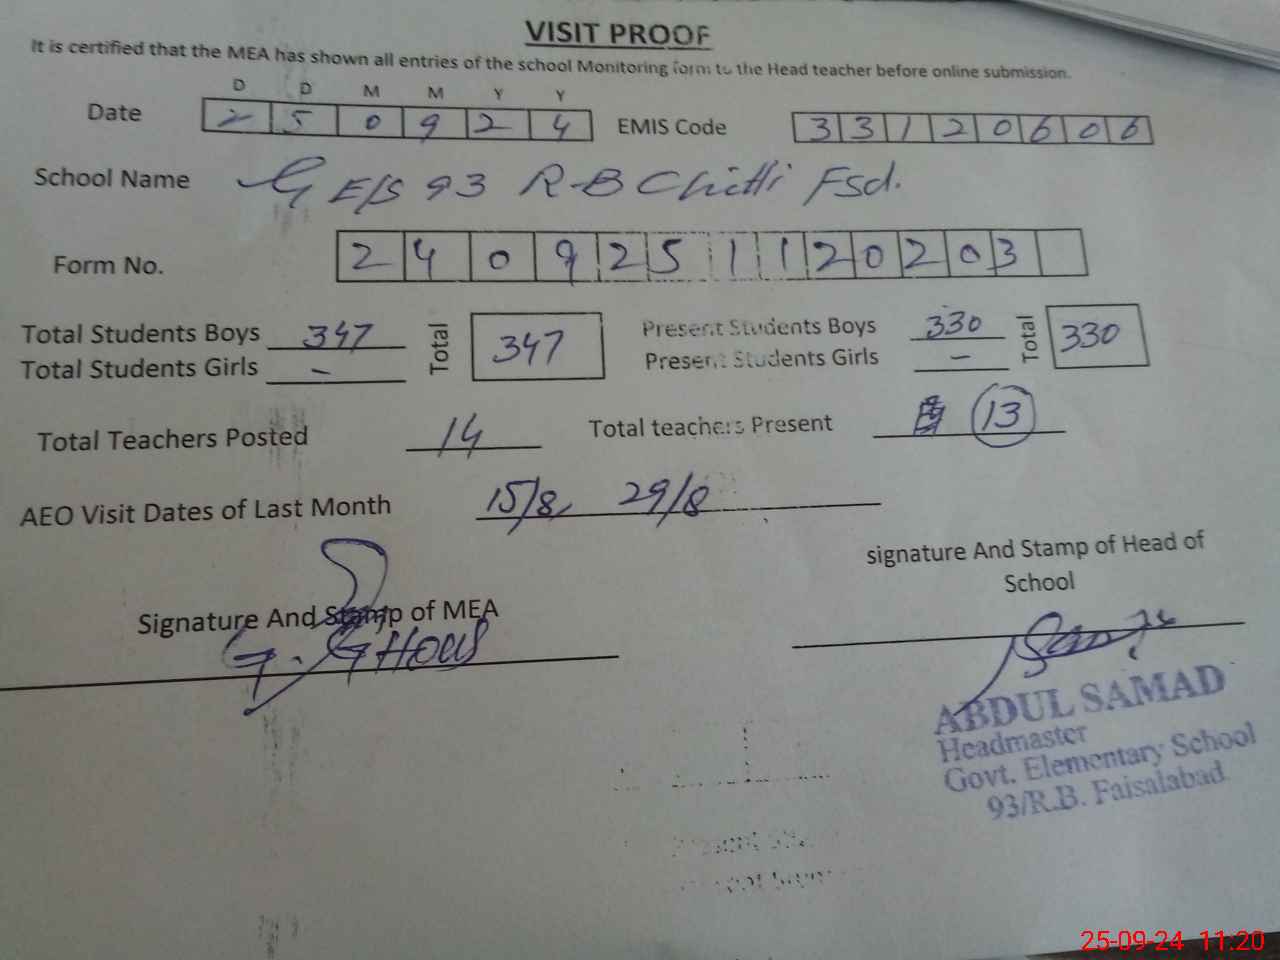 VISIT PROOF
It is certified that the MEA has shown all entries of the school Monitoring form to the Head teacher before online submission.
D D M M Y Y
Date 2 5 0 9 2 4 EMIS Code 3 3 1 2 0 6 0 6
School Name GE/S 93 R-B Chitti Fsd.
Form No. 2 4 0 9 2 5 1 1 2 0 2 0 3
Total Students Boys 347 Total 347 Present Students Boys 330 Total 330
Total Students Girls - Present Students Girls -
Total Teachers Posted 14 Total teachers Present 13
AEO Visit Dates of Last Month 15/8, 29/8
signature And Stamp of Head of
School
Signature And Stamp of MEA
G. GHous
ABDUL SAMAD
Headmaster
Govt. Elementary School
93/R.B. Faisalabad
25-09-24 11:20